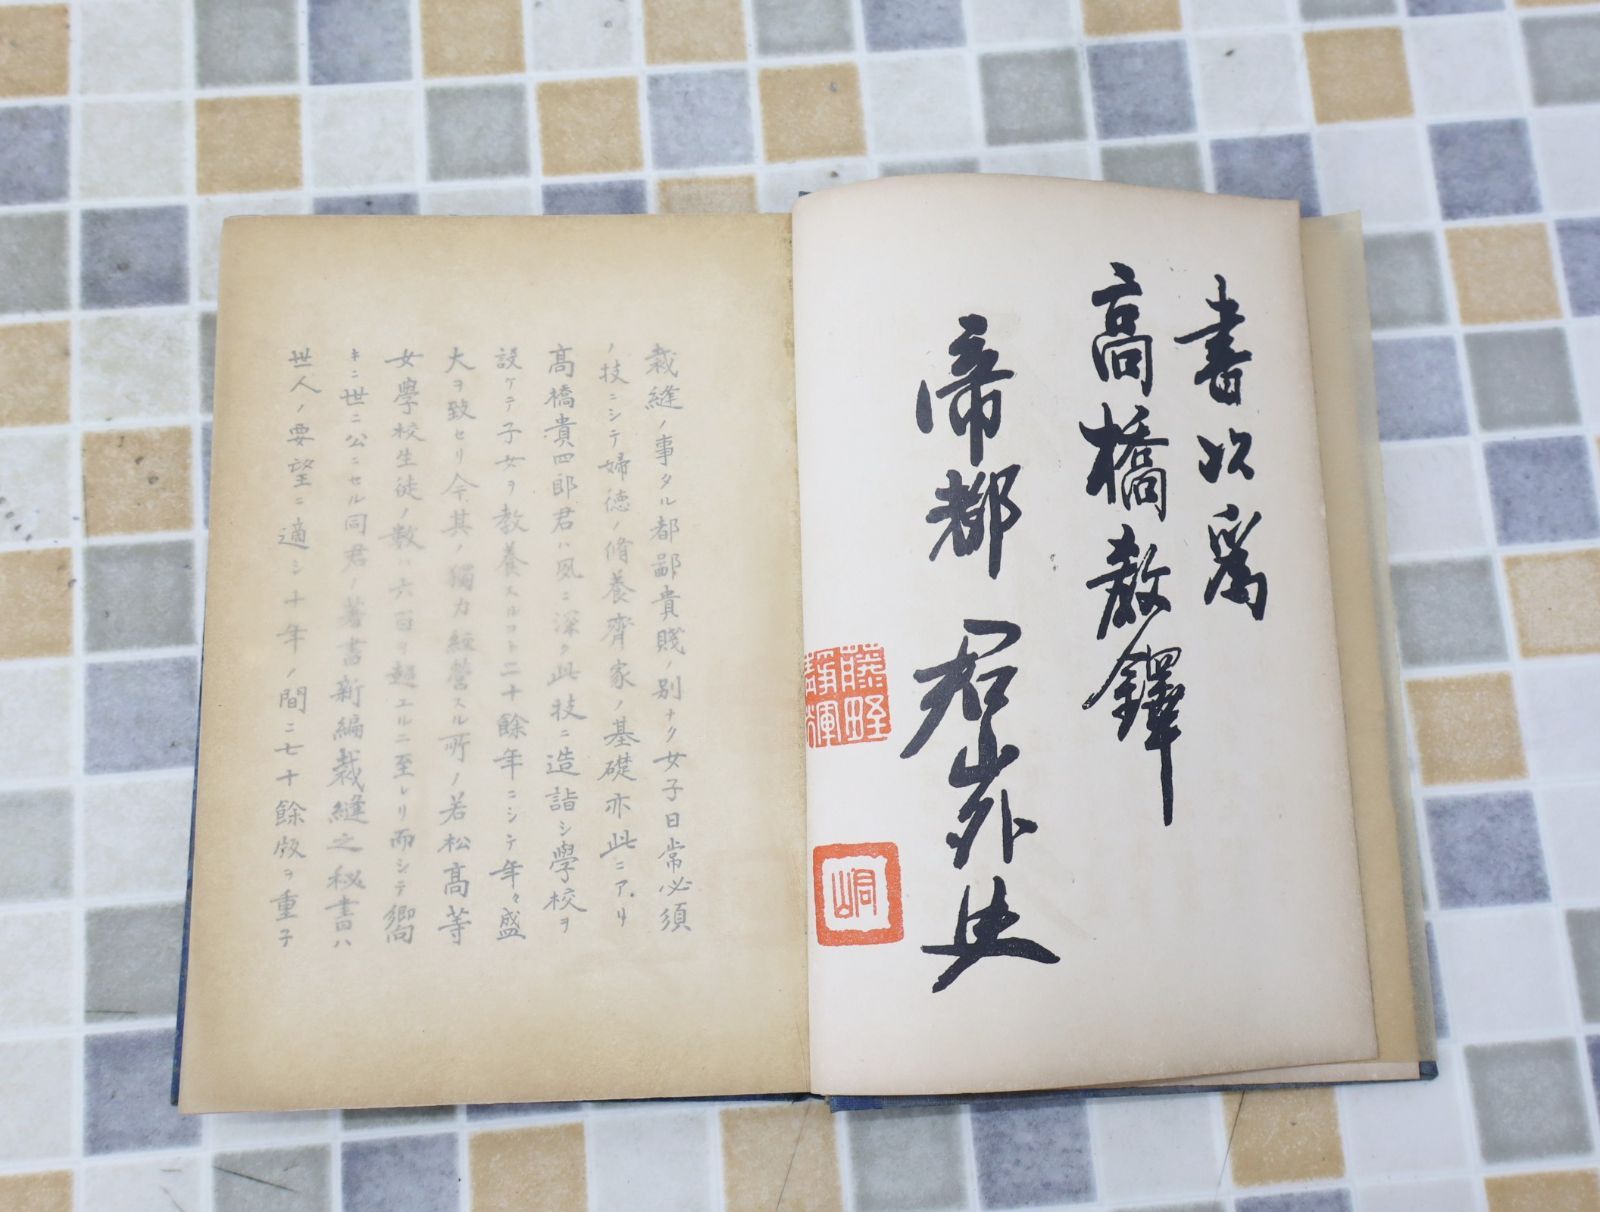 書以為
高橋教鐸
帝都 君山外史
藤野靜輝
君山
裁縫ノ事タル都鄙貴賤ノ別ナク女子日常必須
ノ技ニシテ婦徳ノ脩養齊家ノ基礎亦此ニアリ
髙橋貴四郎君ハ夙ニ深ク此技ニ造詣シ學校ヲ
設ケテ子女ヲ教養スルコト二十餘年ニシテ年々盛
大ヲ致セリ今其ノ獨力經營スル所ノ若松髙等
女學校生徒ノ數ハ六百ヲ超エルニ至レリ而シテ嚮
キニ世ニ公ニセル同君ノ著書新編裁縫之秘書ハ
世人ノ要望ニ適シ十年ノ間ニ七十餘版ヲ重子